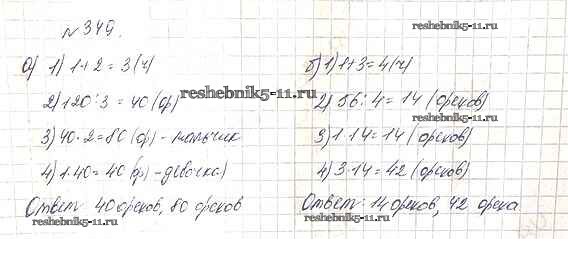 № 349.
reshebnik5-11.ru
а) 1) 1+2=3(ч)
2) 120:3=40(ор)
reshebnik5-11.ru
3) 40·2=80(ор)-мальчик
4) 1·40=40(ор)-девочка)
Ответ: 40 орехов, 80 орехов
reshebnik5-11.ru
б) 1) 1+3=4(ч)
2) 56:4=14 (орехов)
3) 1·14=14 (орехов)
4) 3·14=42 (орехов)
reshebnik5-11.ru
Ответ: 14 орехов, 42 ореха.